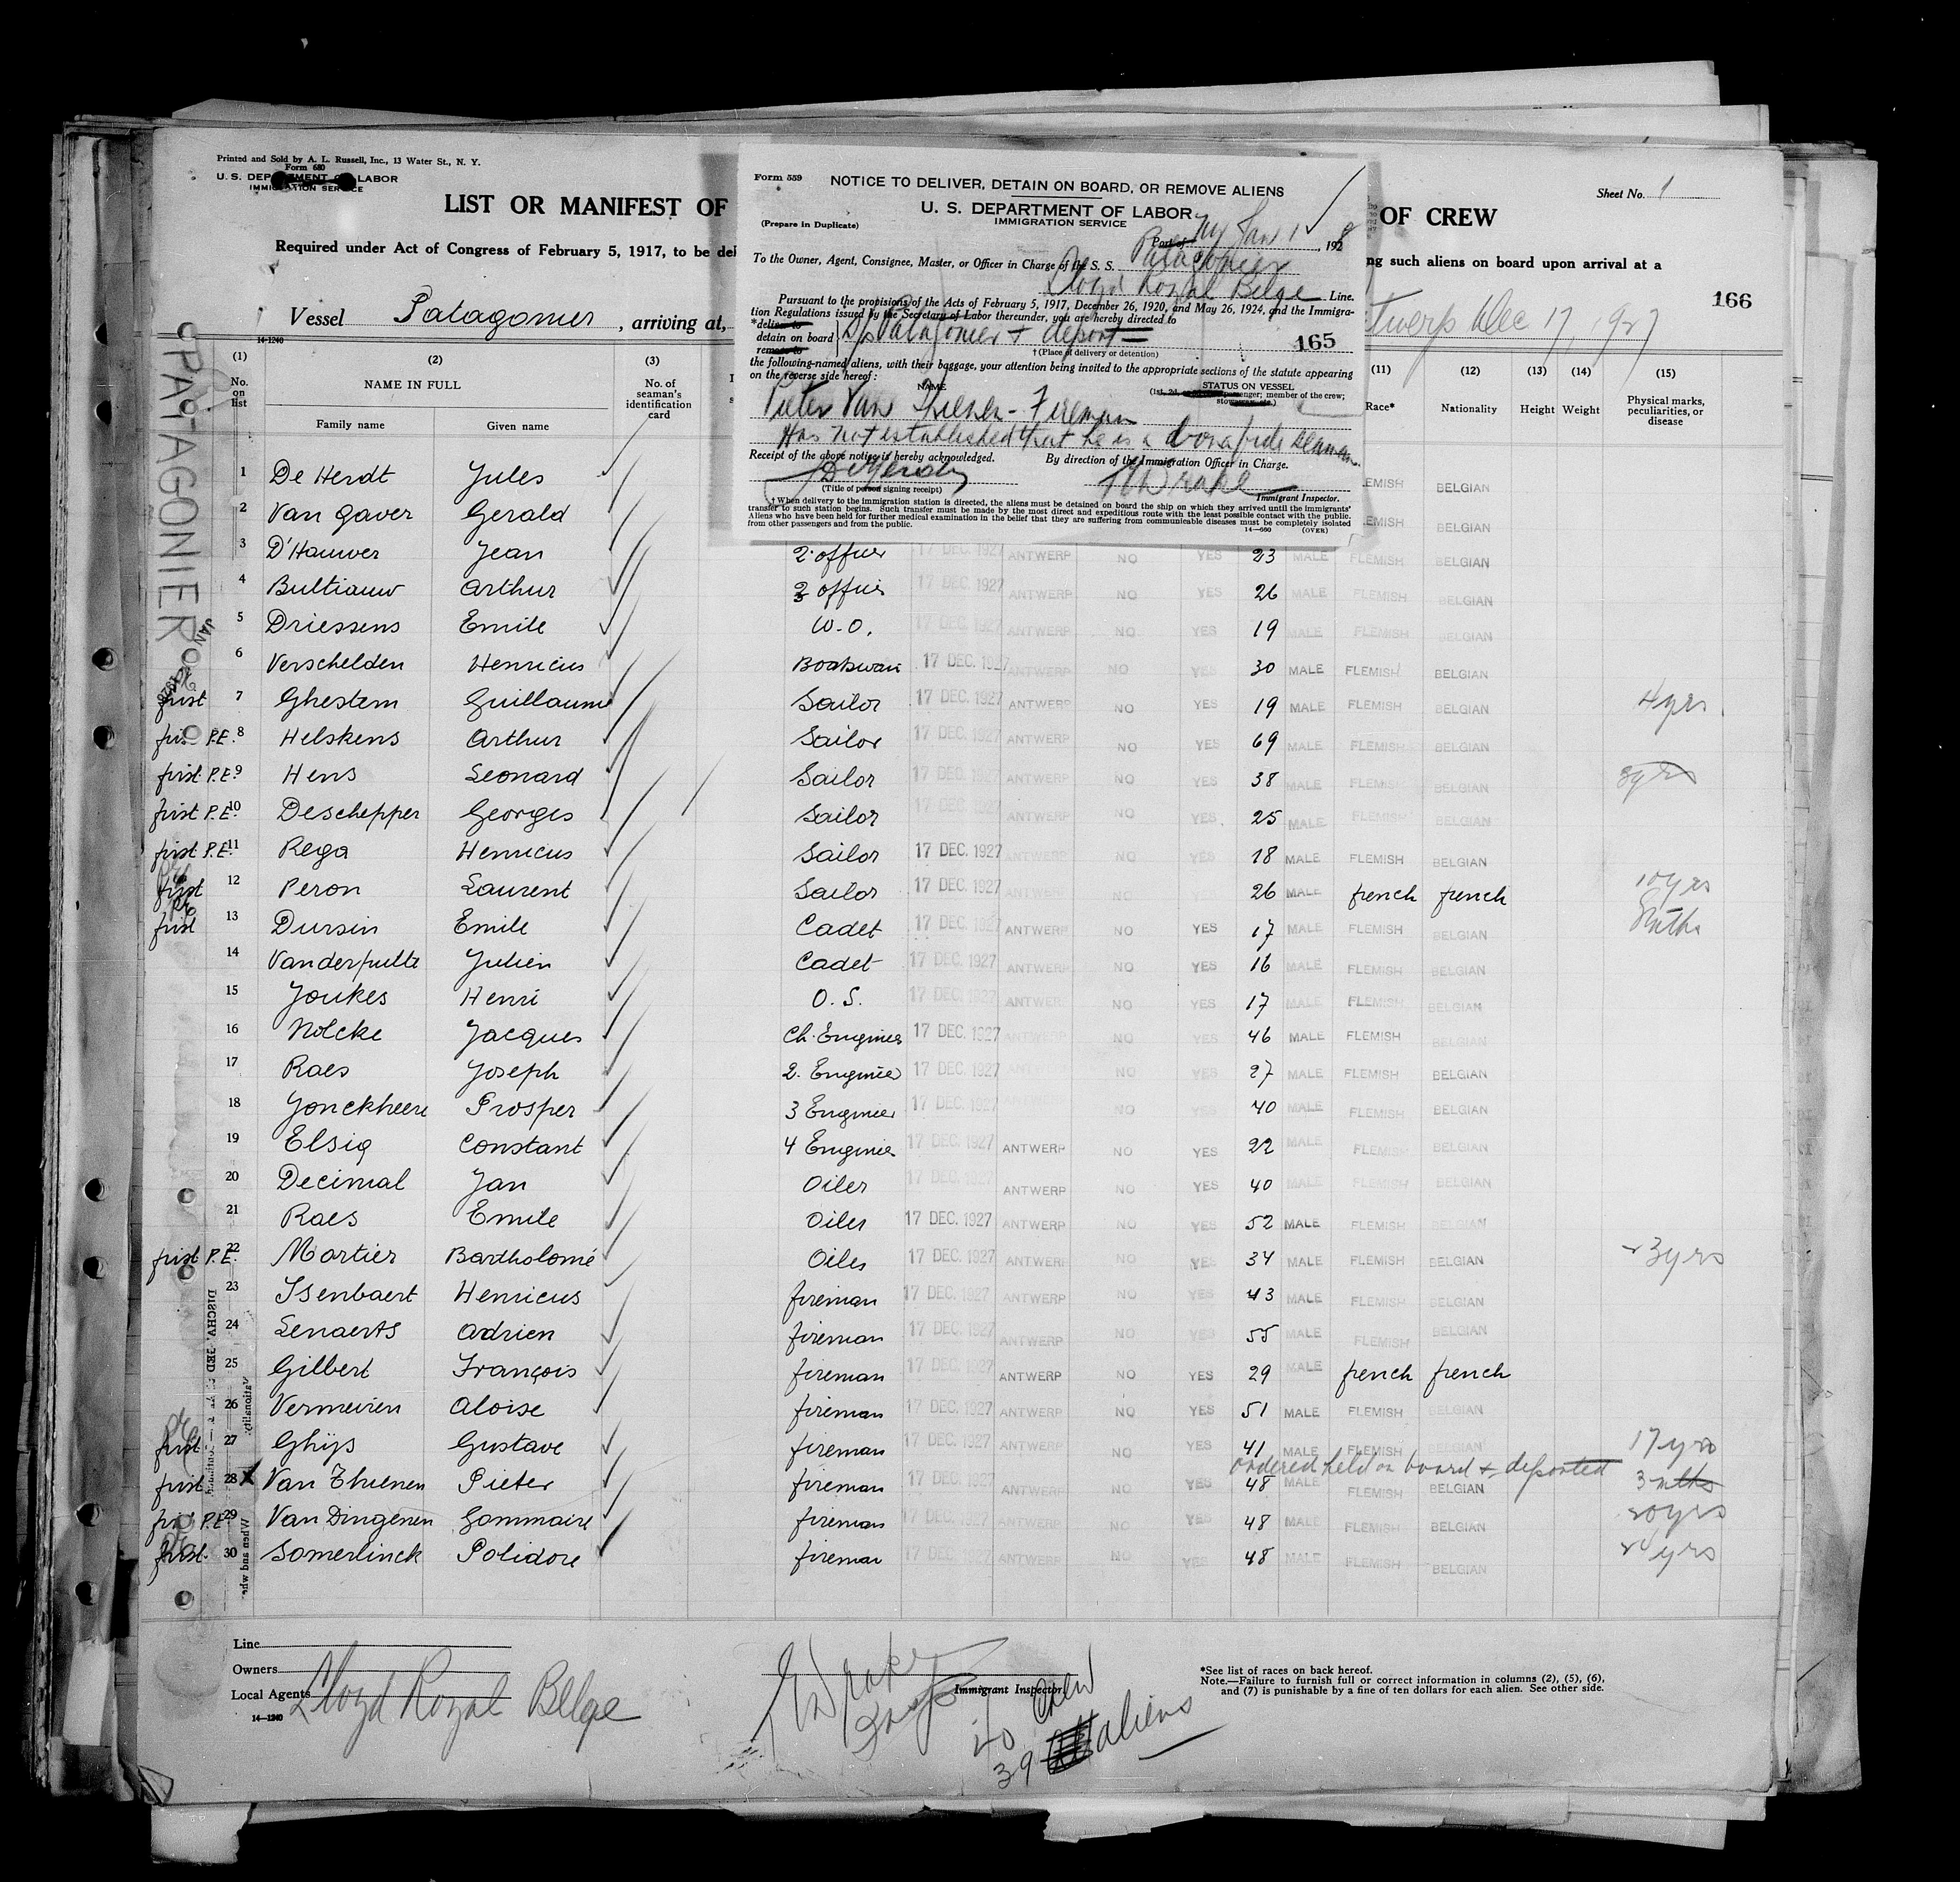 Printed and Sold by A. L. Russell, Inc., 13 Water St., N. Y.
Form 680
U. S. DEPARTMENT OF LABOR
IMMIGRATION SERVICE
LIST OR MANIFEST OF
OF CREW
Sheet No. 1
Required under Act of Congress of February 5, 1917, to be deli
ng such aliens on board upon arrival at a
166
Vessel Patagonier, arriving at,
twerp Dec 17, 1927
14-1240
Form 559
NOTICE TO DELIVER, DETAIN ON BOARD, OR REMOVE ALIENS
U. S. DEPARTMENT OF LABOR
IMMIGRATION SERVICE
(Prepare in Duplicate)
Port of NY Jan 1, 1928
To the Owner, Agent, Consignee, Master, or Officer in Charge of the S. S. Patagonier
Lloyd Royal Belge Line.
Pursuant to the provisions of the Acts of February 5, 1917, December 26, 1920, and May 26, 1924, and the Immigra-
tion Regulations issued by the Secretary of Labor thereunder, you are hereby directed to
*deliver to
detain on board
remove to
S/S Patagonier + deport
165
† (Place of delivery or detention)
the following-named aliens, with their baggage, your attention being invited to the appropriate sections of the statute appearing
on the reverse side hereof:
NAME
STATUS ON VESSEL
(1st, 2d, passenger; member of the crew;
stowaway, etc.)
Pieter Van Thienen - Fireman
Has not established that he is a bona fide seaman
Receipt of the above notice is hereby acknowledged.
By direction of the Immigration Officer in Charge.
Drake
(Title of person signing receipt)
Immigrant Inspector.
† When delivery to the immigration station is directed, the aliens must be detained on board the ship on which they arrived until the immigrants'
transfer to such station begins. Such transfer must be made by the most direct and expeditious route with the least possible contact with the public.
Aliens who have been held for further medical examination in the belief that they are suffering from communicable diseases must be completely isolated
from other passengers and from the public.
14—660
(OVER)
(1) (2) (3) (11) (12) (13) (14) (15)
No. on list
NAME IN FULL
Family name
Given name
No. of seaman's identification card
Race*
Nationality
Height
Weight
Physical marks, peculiarities, or disease
PATAGONIER
JAN 1928
1 De Herdt Jules EMISH BELGIAN
2 Van Gaver Gerald EMISH BELGIAN
3 D'Hauwer Jean 2 officer 17 DEC. 1927 ANTWERP NO YES 23 MALE FLEMISH BELGIAN
4 Bultiauw Arthur 3 officer 17 DEC. 1927 ANTWERP NO YES 26 MALE FLEMISH BELGIAN
5 Driessens Emile W.O. 17 DEC. 1927 ANTWERP NO YES 19 MALE FLEMISH BELGIAN
6 Verschelden Henricus Boatswain 17 DEC. 1927 ANTWERP NO YES 30 MALE FLEMISH BELGIAN
first 7 Ghestem Guillaume Sailor 17 DEC. 1927 ANTWERP NO YES 19 MALE FLEMISH BELGIAN 4 yrs
first P.E. 8 Helskens Arthur Sailor 17 DEC. 1927 ANTWERP NO YES 69 MALE FLEMISH BELGIAN
first P.E. 9 Hens Leonard Sailor 17 DEC. 1927 ANTWERP NO YES 38 MALE FLEMISH BELGIAN yrs
first P.E. 10 Deschepper Georges Sailor 17 DEC. 1927 ANTWERP NO YES 25 MALE FLEMISH BELGIAN
first P.E. 11 Rega Henricus Sailor 17 DEC. 1927 ANTWERP NO YES 18 MALE FLEMISH BELGIAN
first 12 Peron Laurent Sailor 17 DEC. 1927 ANTWERP NO 26 MALE french french 10 yrs
first 13 Dursin Emile Cadet 17 DEC. 1927 ANTWERP NO YES 17 MALE FLEMISH BELGIAN 8 mths
14 Vanderputte Julien Cadet 17 DEC. 1927 ANTWERP NO YES 16 MALE FLEMISH BELGIAN
15 Jonkes Henri O.S. 17 DEC. 1927 ANTWERP NO YES 17 MALE FLEMISH BELGIAN
16 Nolcke Jacques Ch. Enginier 17 DEC. 1927 ANTWERP NO YES 46 MALE FLEMISH BELGIAN
17 Raes Joseph 2. Enginier 17 DEC. 1927 ANTWERP NO YES 27 MALE FLEMISH BELGIAN
18 Jonckheere Prosper 3 Enginier 17 DEC. 1927 ANTWERP NO YES 40 MALE FLEMISH BELGIAN
19 Elsig Constant 4 Enginier 17 DEC. 1927 ANTWERP NO YES 22 MALE FLEMISH BELGIAN
20 Decimal Jan Oiler 17 DEC. 1927 ANTWERP NO YES 40 MALE FLEMISH BELGIAN
21 Raes Emile Oiler 17 DEC. 1927 ANTWERP NO YES 52 MALE FLEMISH BELGIAN
first P.E. 22 Mortier Bartholomé Oiler 17 DEC. 1927 ANTWERP NO YES 34 MALE FLEMISH BELGIAN 3 yrs
23 Isenbaert Henricus fireman 17 DEC. 1927 ANTWERP NO YES 43 MALE FLEMISH BELGIAN
24 Lenaerts Adrien fireman 17 DEC. 1927 ANTWERP NO YES 55 MALE FLEMISH BELGIAN
25 Gilbert François fireman 17 DEC. 1927 ANTWERP NO YES 29 MALE french french
26 Vermeiren Aloise fireman 17 DEC. 1927 ANTWERP NO YES 51 MALE FLEMISH BELGIAN
first 27 Ghijs Gustave fireman 17 DEC. 1927 ANTWERP NO YES 41 MALE FLEMISH BELGIAN 17 yrs
ordered held on board + deported
first 28 X Van Thienen Pieter fireman 17 DEC. 1927 ANTWERP NO YES 48 MALE FLEMISH BELGIAN 3 mths
first P.E. 29 Van Dingenen Gommaire fireman 17 DEC. 1927 ANTWERP NO YES 48 MALE FLEMISH BELGIAN 20 yrs
first 30 Somerlinck Polidore fireman 17 DEC. 1927 ANTWERP NO YES 48 MALE FLEMISH BELGIAN yrs
Line
Owners
Local Agents Lloyd Royal Belge
14—1240
Drake
Immigrant Inspector
40 Crew
39 aliens
*See list of races on back hereof.
Note.—Failure to furnish full or correct information in columns (2), (5), (6),
and (7) is punishable by a fine of ten dollars for each alien. See other side.